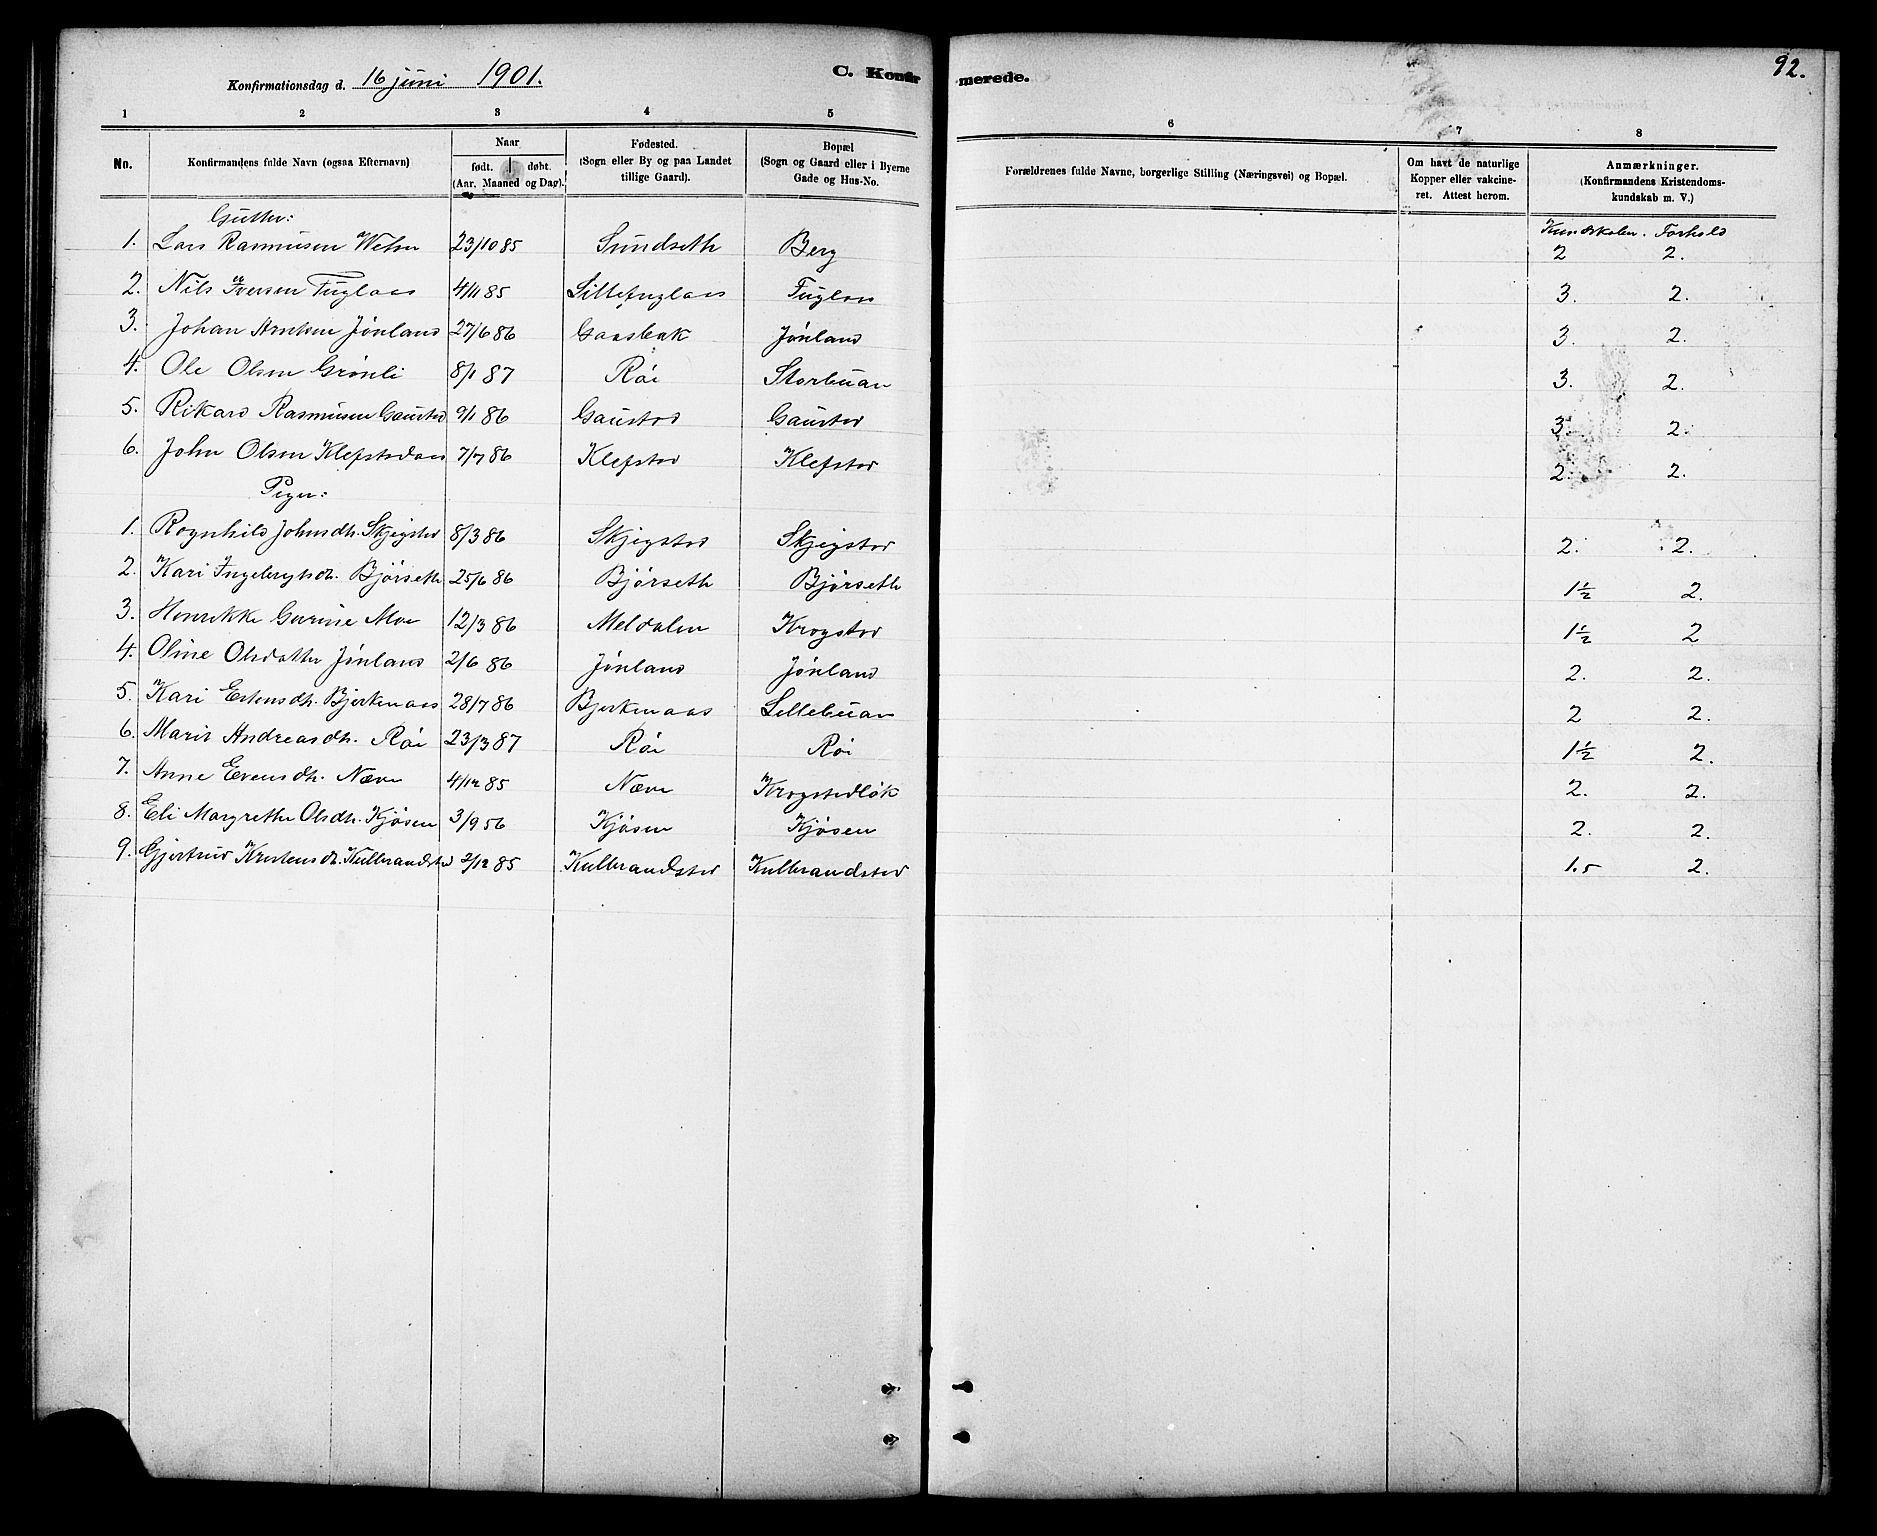 Konfirmationsdag d. 16 juni 1901.
C. Konfirmerede.
92.
1 2 3 4 5 6 7 8
No.
Konfirmandens fulde Navn (ogsaa Efternavn)
Naar
født. døbt.
(Aar, Maaned og Dag).
Fødested.
(Sogn eller By og paa Landet
tillige Gaard).
Bopæl
(Sogn og Gaard eller i Byerne
Gade og Hus-No.
Forældrenes fulde Navne, borgerlige Stilling (Næringsvei) og Bopæl.
Om havt de naturlige
Kopper eller vakcine-
ret. Attest herom.
Anmærkninger.
(Konfirmandens Kristendoms-
kundskab m. V.)
Gutter:
Kundskaber. Forhold
1. Lars Rasmusen 23/10 85 Sundseth Berg 2 2.
2. Nils Iversen Fuglaas 4/11 85 Sillefuglaas Fuglaas 3. 2.
3. Johan Arntsen Jønland 27/6 86 Gaasbak Jønland 3. 2.
4. Ole Olsen Grønli 8/1 87 Røi Storbuan 3. 2.
5. Rikard Rasmusen Gaustad 9/1 86 Gaustad Gaustad 3. 2.
6. John Olsen Klefstadaas 7/7 86 Klefstad Klefstad 2. 2.
Piger:
1. Ragnhild Johnsdtr. Skjegstad 8/3 86 Skjegstad Skjegstad 2. 2.
2. Kari Ingebrigtsdtr. Bjørseth 25/6 86 Bjørseth Bjørseth 1½ 2.
3. Henrikke Gurine Moe 12/3 86 Meldalen Krogstad 1½ 2
4. Oline Olsdatter Jønland 2/6 86 Jønland Jønland 2. 2.
5. Kari Estensdtr. Bjerkenaas 28/7 86 Bjerkenaas Lillebuan 2 2.
6. Marit Andreasdtr. Røi 23/3 87 Røi Røi 1½ 2.
7. Anne Evensdtr. Næve 4/12 85 Næve Krogstadløk 2. 2.
8. Eli Margrethe Olsdtr. Kjøsen 3/9 56 Kjøsen Kjøsen 2. 2.
9. Gjertrud Kristensdtr. Kulbrandstad 2/12 85 Kulbrandstad Kulbrandstad 1.5 2.